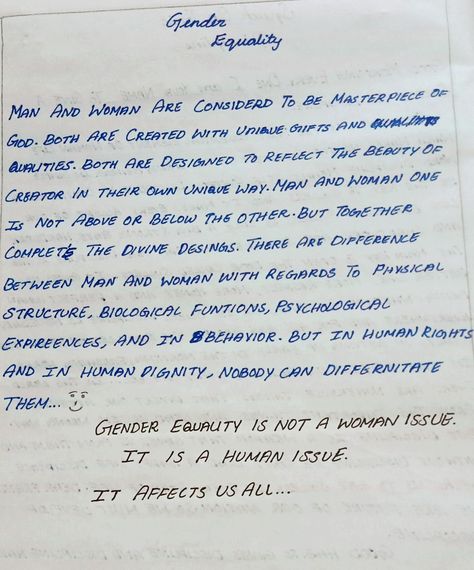 Gender
Equality
MAN AND WOMAN ARE CONSIDERD TO BE MASTERPIECE OF
GOD. BOTH ARE CREATED WITH UNIQUE GIFTS AND
QUALITIES. BOTH ARE DESIGNED TO REFLECT THE BEAUTY OF
CREATOR IN THEIR OWN UNIQUE WAY. MAN AND WOMAN ONE
IS NOT ABOVE OR BELOW THE OTHER. BUT TOGETHER
COMPLETE THE DIVINE DESINGS. THERE ARE DIFFERENCE
BETWEEN MAN AND WOMAN WITH REGARDS TO PHYSICAL
STRUCTURE, BIOLOGICAL FUNTIONS, PSYCHOLOGICAL
EXPIREENCES, AND IN BEHAVIOR. BUT IN HUMAN RIGHTS
AND IN HUMAN DIGNITY, NOBODY CAN DIFFERNITATE
THEM...
GENDER EQUALITY IS NOT A WOMAN ISSUE.
IT IS A HUMAN ISSUE.
IT AFFECTS US ALL...